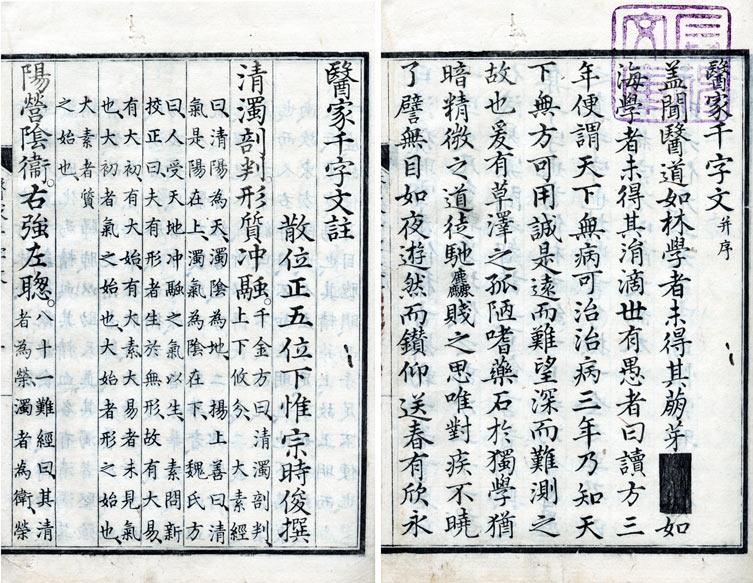 醫家千字文并序
盖聞醫道如林學者未得其萌芽 如
海學者未得其涓滴世有愚者曰讀方三
年便謂天下無病可治治病三年乃知天
下無方可用誠是遠而難望深而難測之
故也爰有草澤之孤陋嗜藥石於獨學猶
暗精微之道徒馳麤賤之思唯對疾不曉
了譬無目如夜遊然而鑽仰送春有欣永
醫家千字文註
散位正五位下惟宗時俊撰
清濁剖判、形質冲融。千金方曰、清濁剖判、
上下攸分、 大素經
曰、清陽為天、濁陰為地、 揚上善曰、清
氣是陽在上、濁氣為陰在下、 魏氏方
曰人受天地冲融之氣以生、 素問新
校正曰、夫有形者生於無形、故有大易、
有大初有大始有大素大易者未見氣
也、大初者氣之始也、大始者形之始也、
大素者質
之始也、
陽營陰衞。右強左聰。八十一難經曰、其清
者為榮濁者為衞、榮